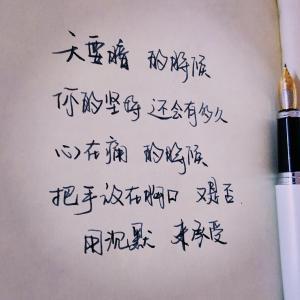 天要暗 的時候
你的坚持 还会有多久
心在痛 的時候
把手放在胸口 又是否
用沉默 来承受